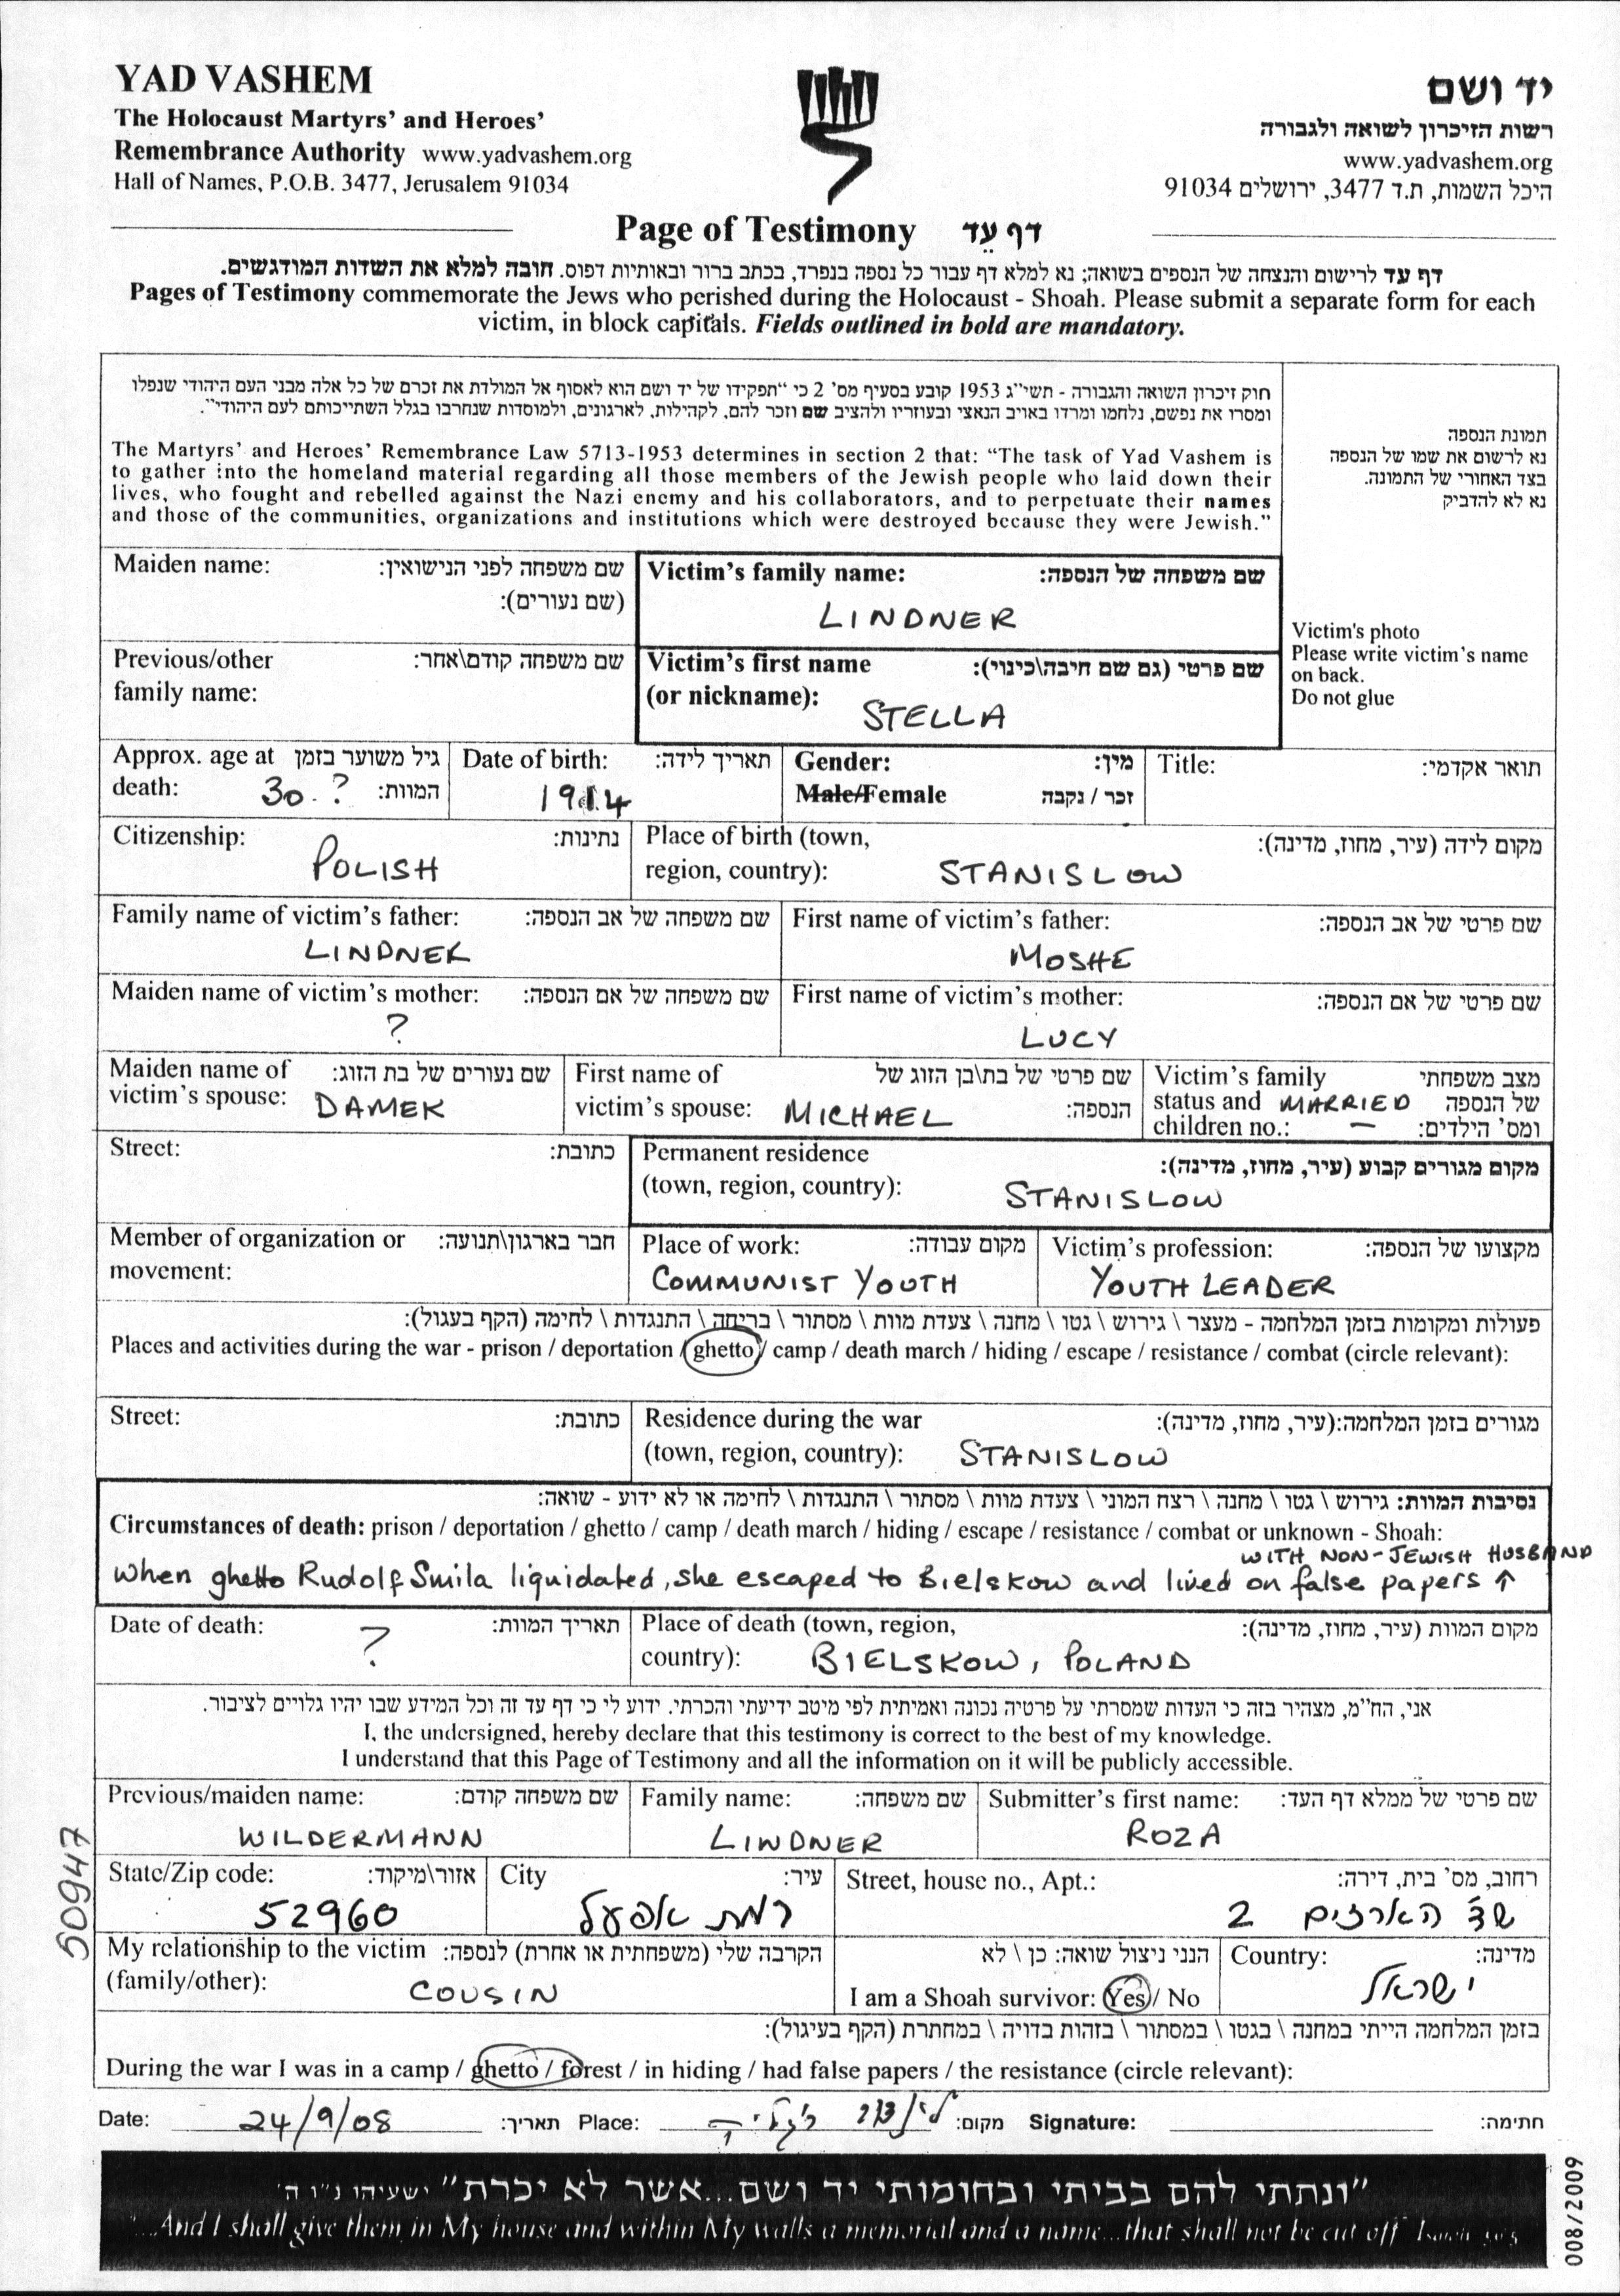 YAD VASHEM
The Holocaust Martyrs' and Heroes'
Remembrance Authority www.yadvashem.org
Hall of Names, P.O.B. 3477, Jerusalem 91034
יד ושם
רשות הזיכרון לשואה ולגבורה
www.yadvashem.org
היכל השמות, ת.ד 3477, ירושלים 91034
Page of Testimony דף עֵד
דף עד לרישום והנצחה של הנספים בשואה; נא למלא דף עבור כל נספה בנפרד, בכתב ברור ובאותיות דפוס. חובה למלא את השדות המודגשים.
Pages of Testimony commemorate the Jews who perished during the Holocaust - Shoah. Please submit a separate form for each
victim, in block capitals. Fields outlined in bold are mandatory.
חוק זיכרון השואה והגבורה - תשי"ג 1953 קובע בסעיף מס' 2 כי "תפקידו של יד ושם הוא לאסוף אל המולדת את זכרם של כל אלה מבני העם היהודי שנפלו
ומסרו את נפשם, נלחמו ומרדו באויב הנאצי ובעוזריו ולהציב שם וזכר להם, לקהילות, לארגונים, ולמוסדות שנחרבו בגלל השתייכותם לעם היהודי".
The Martyrs' and Heroes' Remembrance Law 5713-1953 determines in section 2 that: "The task of Yad Vashem is
to gather into the homeland material regarding all those members of the Jewish people who laid down their
lives, who fought and rebelled against the Nazi enemy and his collaborators, and to perpetuate their names
and those of the communities, organizations and institutions which were destroyed because they were Jewish."
תמונת הנספה
נא לרשום את שמו של הנספה
בצד האחורי של התמונה.
נא לא להדביק
Victim's photo
Please write victim's name
on back.
Do not glue
Maiden name: שם משפחה לפני הנישואין:
(שם נעורים):
Victim's family name: שם משפחה של הנספה:
LINDNER
Previous/other שם משפחה קודם\אחר:
family name:
Victim's first name שם פרטי (גם שם חיבה\כינוי):
(or nickname):
STELLA
Approx. age at גיל משוער בזמן
death: 30.? המוות:
Date of birth: תאריך לידה:
1914
Gender: מין:
Male/Female זכר / נקבה
Title: תואר אקדמי:
Citizenship: נתינות:
POLISH
Place of birth (town, מקום לידה (עיר, מחוז, מדינה):
region, country): STANISLOW
Family name of victim's father: שם משפחה של אב הנספה:
LINDNER
First name of victim's father: שם פרטי של אב הנספה:
MOSHE
Maiden name of victim's mother: שם משפחה של אם הנספה:
?
First name of victim's mother: שם פרטי של אם הנספה:
LUCY
Maiden name of שם נעורים של בת הזוג:
victim's spouse: DAMEK
First name of שם פרטי של בת\בן הזוג של
victim's spouse: MICHAEL הנספה:
Victim's family מצב משפחתי
status and MARRIED של הנספה
children no.: – ומס' הילדים:
Street: כתובת:
Permanent residence מקום מגורים קבוע (עיר, מחוז, מדינה):
(town, region, country): STANISLOW
Member of organization or חבר בארגון\תנועה:
movement:
Place of work: מקום עבודה:
COMMUNIST YOUTH
Victim's profession: מקצועו של הנספה:
YOUTH LEADER
פעולות ומקומות בזמן המלחמה - מעצר \ גירוש \ גטו \ מחנה \ צעדת מוות \ מסתור \ בריחה \ התנגדות \ לחימה (הקף בעגול):
Places and activities during the war - prison / deportation / ghetto / camp / death march / hiding / escape / resistance / combat (circle relevant):
Street: כתובת:
Residence during the war מגורים בזמן המלחמה:(עיר, מחוז, מדינה):
(town, region, country): STANISLOW
נסיבות המוות: גירוש \ גטו \ מחנה \ רצח המוני \ צעדת מוות \ מסתור \ התנגדות \ לחימה או לא ידוע - שואה:
Circumstances of death: prison / deportation / ghetto / camp / death march / hiding / escape / resistance / combat or unknown - Shoah:
WITH NON-JEWISH HUSBAND
When ghetto Rudolf Smila liquidated, she escaped to Bielskow and lived on false papers ↑
Date of death: תאריך המוות:
?
Place of death (town, region, מקום המוות (עיר, מחוז, מדינה):
country): BIELSKOW, POLAND
אני, הח"מ, מצהיר בזה כי העדות שמסרתי על פרטיה נכונה ואמיתית לפי מיטב ידיעתי והכרתי. ידוע לי כי דף עד זה וכל המידע שבו יהיו גלויים לציבור.
I, the undersigned, hereby declare that this testimony is correct to the best of my knowledge.
I understand that this Page of Testimony and all the information on it will be publicly accessible.
Previous/maiden name: שם משפחה קודם:
WILDERMANN
Family name: שם משפחה:
LINDNER
Submitter's first name: שם פרטי של ממלא דף העד:
ROZA
State/Zip code: אזור\מיקוד:
52960
City עיר:
רמת אפעל
Street, house no., Apt.: רחוב, מס' בית, דירה:
שד' הארזים 2
My relationship to the victim הקרבה שלי (משפחתית או אחרת) לנספה:
(family/other): COUSIN
הנני ניצול שואה: כן \ לא
I am a Shoah survivor: Yes / No
Country: מדינה:
ישראל
בזמן המלחמה הייתי במחנה \ בגטו \ במסתור \ בזהות בדויה \ במחתרת (הקף בעיגול):
During the war I was in a camp / ghetto / forest / in hiding / had false papers / the resistance (circle relevant):
Date: 24/9/08 תאריך: Place: מקום: Signature: חתימה:
"ונתתי להם בביתי ובחומותי יד ושם...אשר לא יכרת" ישעיהו נ"ו ה'
"...And I shall give them in My house and within My walls a memorial and a name...that shall not be cut off"
50947
008/2009